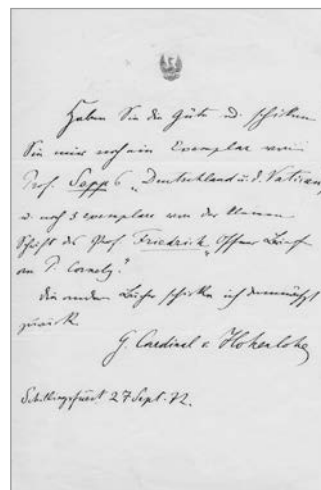 Haben Sie die Güte u. schicken
Sie mir noch ein Exemplar von
Prof. Sepp's „Deutschland u. d. Vatican"
u. noch 3 exemplare von der kleinen
Schrift des Prof. Friedrich „Offner Brief
an P. Cornely"
die andern Bücher schicke ich demnächst
zurück
G. Cardinal v Hohenlohe
Schillingsfürst 27 Sept. 72.